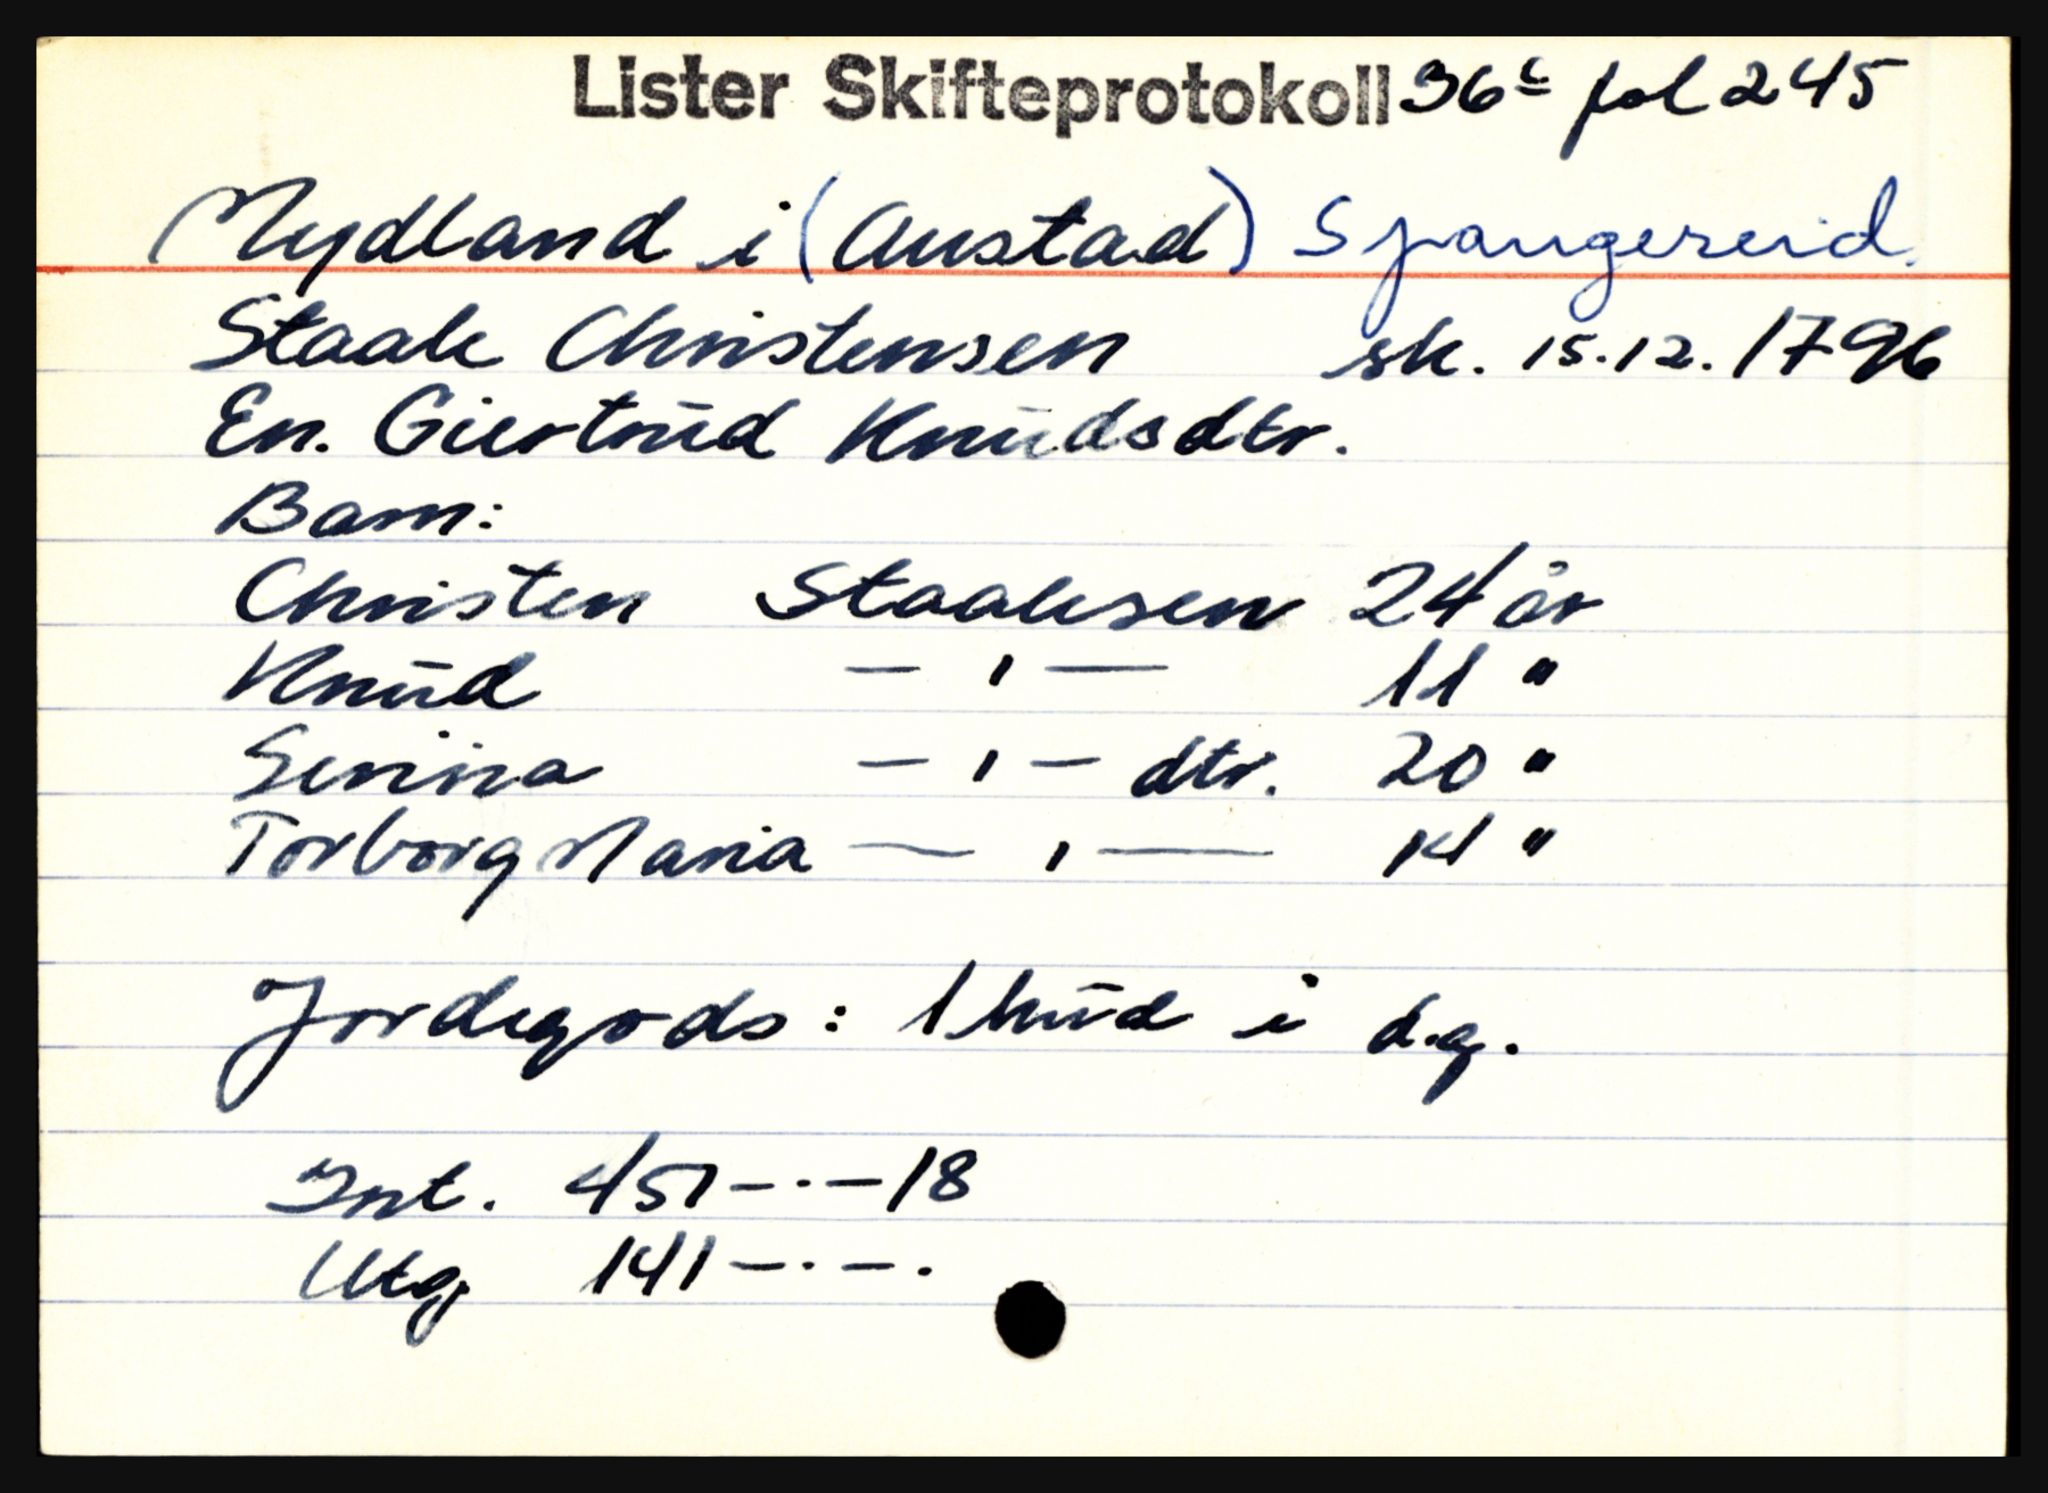 Lister Skifteprotokoll 36c fol 245
Mydland i (Austad) Spangereid.
Staale Christensen sk. 15.12.1796
En. Giertrud Knudsdtr.
Barn:
Christen Staalesen 24 år
Knud — , — 11 "
Serina — , — dtr. 20 "
Torborg Maria — , — 14 "
Jordegods: 1 hud i d.g.
Int. 451 - · - 18
Utg 141 - · - ·